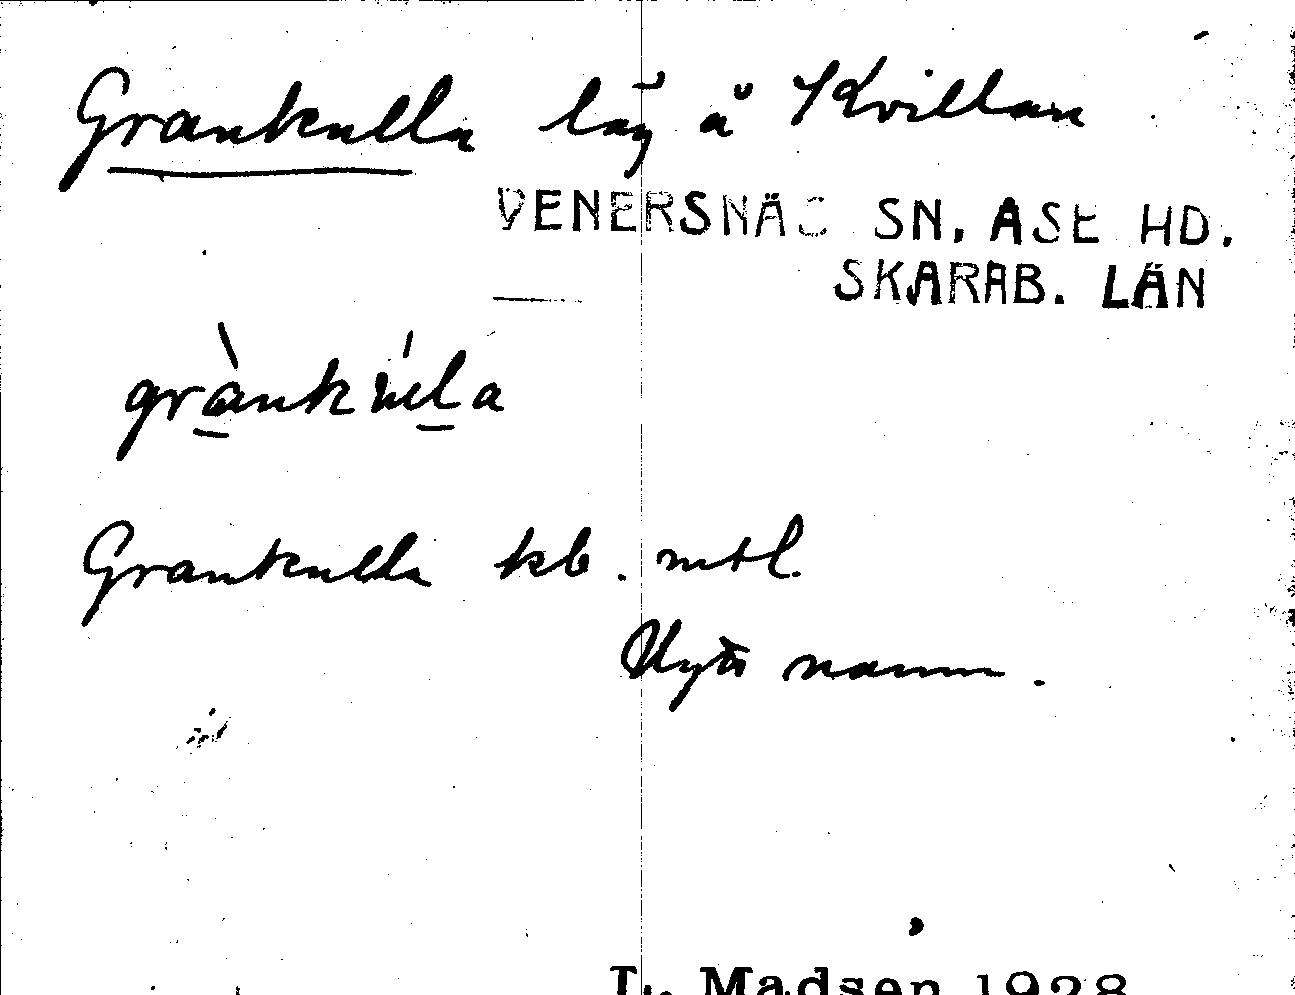 Grankulla låg å Kvillan
VENERSNÄS SN, ASE HD.
SKARAB. LÄN
grànkúla
Grankulla kb. mtl.
Nytt namn.
L. Madsen 1928